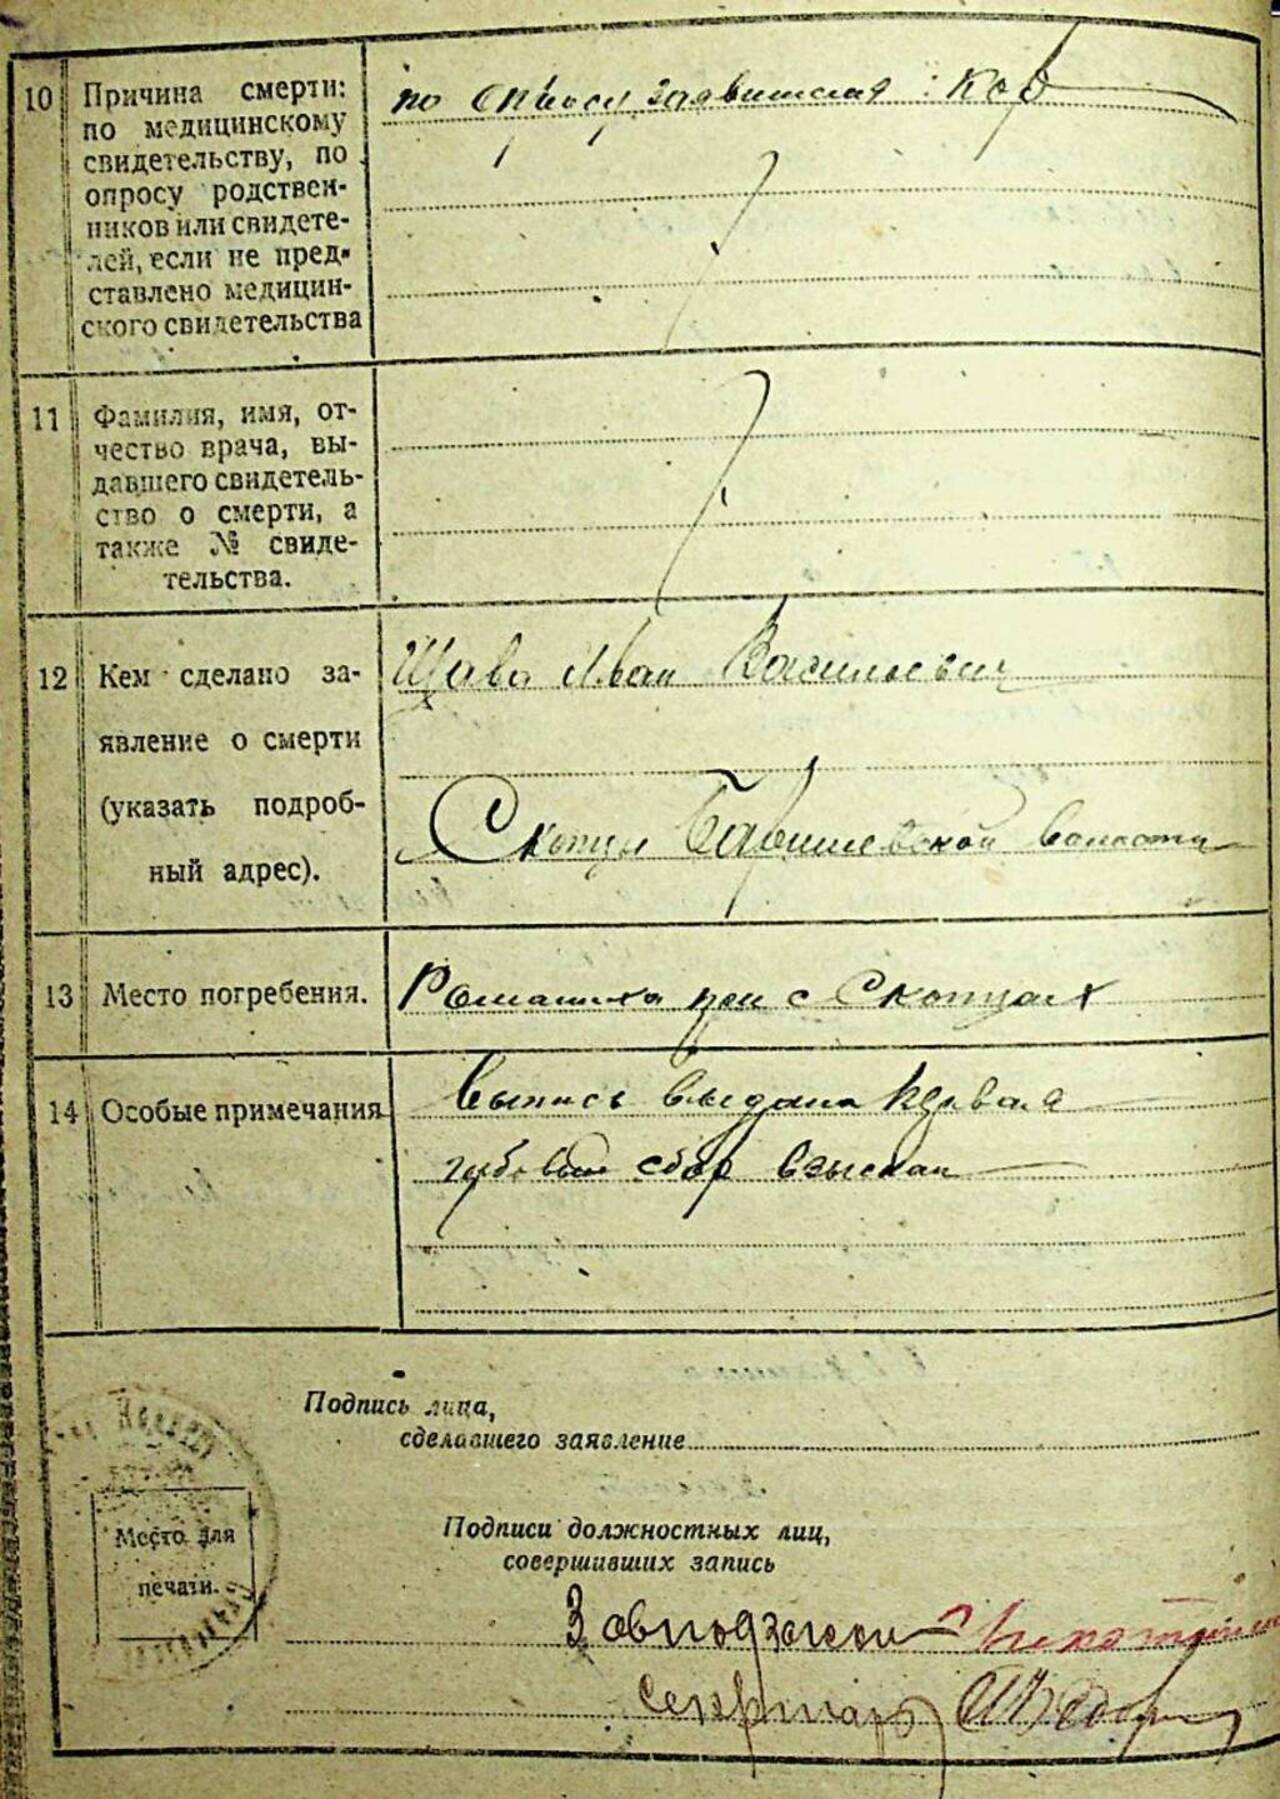 10 Причина смерти: по медицинскому свидетельству, по опросу родственников или свидетелей, если не представлено медицинского свидетельства
по опросу : Корь
11 Фамилия, имя, от-
чество врача, вы-
давшего свидетель-
ство о смерти, а
также № свиде-
тельства.
12 Кем сделано за-
явление о смерти
(указать подроб-
ный адрес).
Иван Васильевич
Скопцы волости
13 Место погребения.
при с Скопцах
14 Особые примечания
Выпись выдана
сбор взыскан
Подпись лица,
сделавшего заявление
Место для
печати.
Подписи должностных лиц,
совершивших запись
Завподзагсом
секретарь